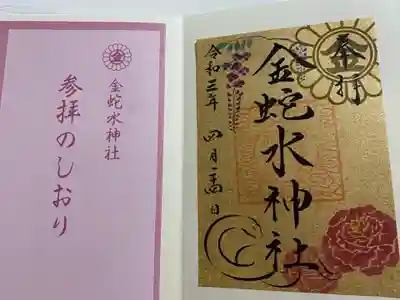 金蛇水神社
参拝のしおり
奉拝
金蛇水神社
令和三年 四月二十四日